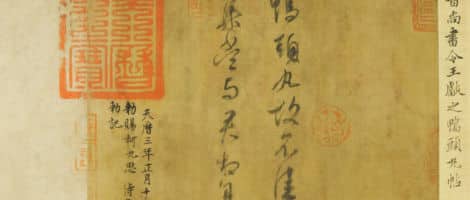 尚書令王獻之鴨頭丸帖
鴨頭丸故不佳
集當与君相見
天曆三年正月十
勑賜柯九思侍
勑記